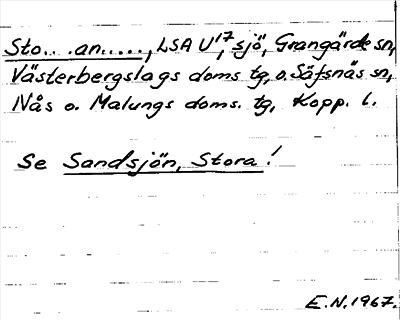 Sto... an....., LSA U¹⁷, sjö, Grangärde sn,
Västerbergslags doms tg, o. Säfsnäs sn,
Nås o. Malungs doms. tg, Kopp. l.
Se Sandsjön, Stora!
E.N. 1967.